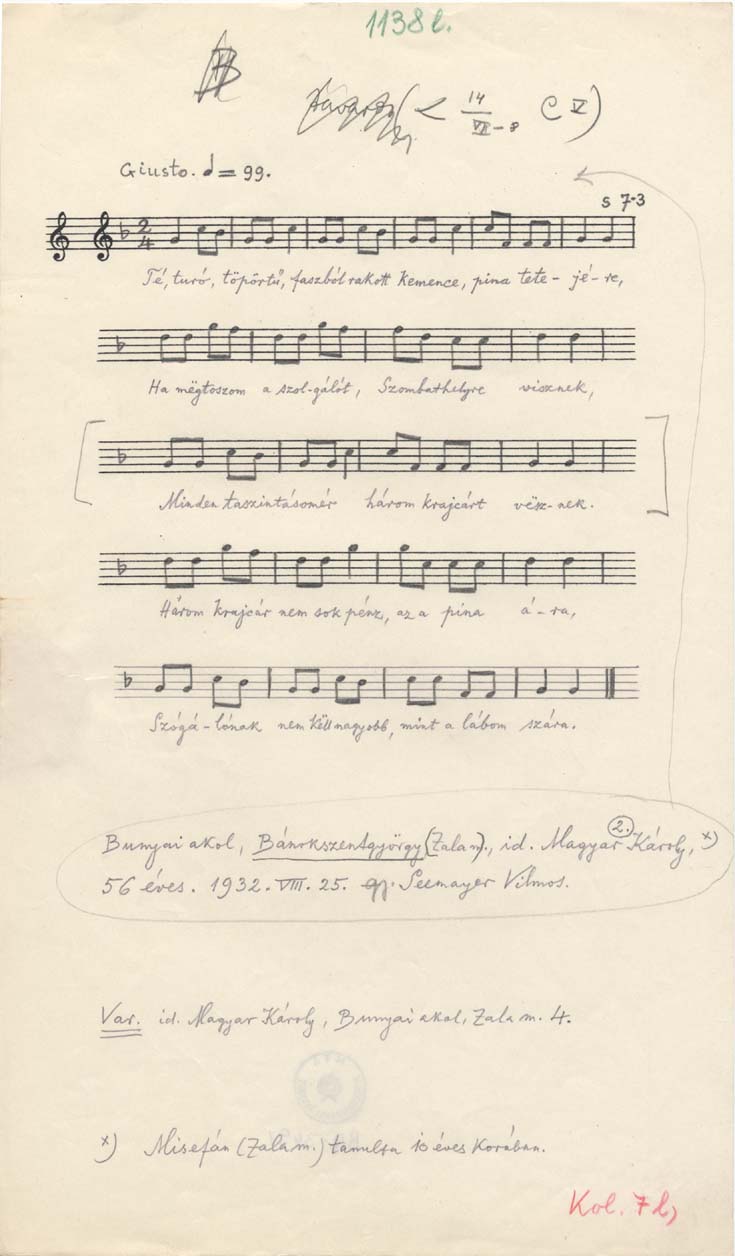 1138 l.
( < 14/VII-8 C V )
Giusto. = 99.
s 7-3
2 4
Té, turó, töpörtű, faszból rakott kemence, pina tete - jé - re,
Ha mëgtoszom a szol-gálót, Szombathelyre visznek,
Minden taszintásomér három krajcárt vësz-nek.
Három krajcár nem sok pénz, az a pina á - ra,
Szógá - lónak nem këll nagyobb, mint a lábom szára.
Bunyai akol, Bánokszentgyörgy (Zala m.), id. Magyar Károly, x)
2.
56 éves. 1932. VIII. 25. gy. Seemayer Vilmos.
Var. id. Magyar Károly, Bunyai akol, Zala m. 4.
x) Misefán (Zala m.) tanulta éves korában.
Kol. 7 l,